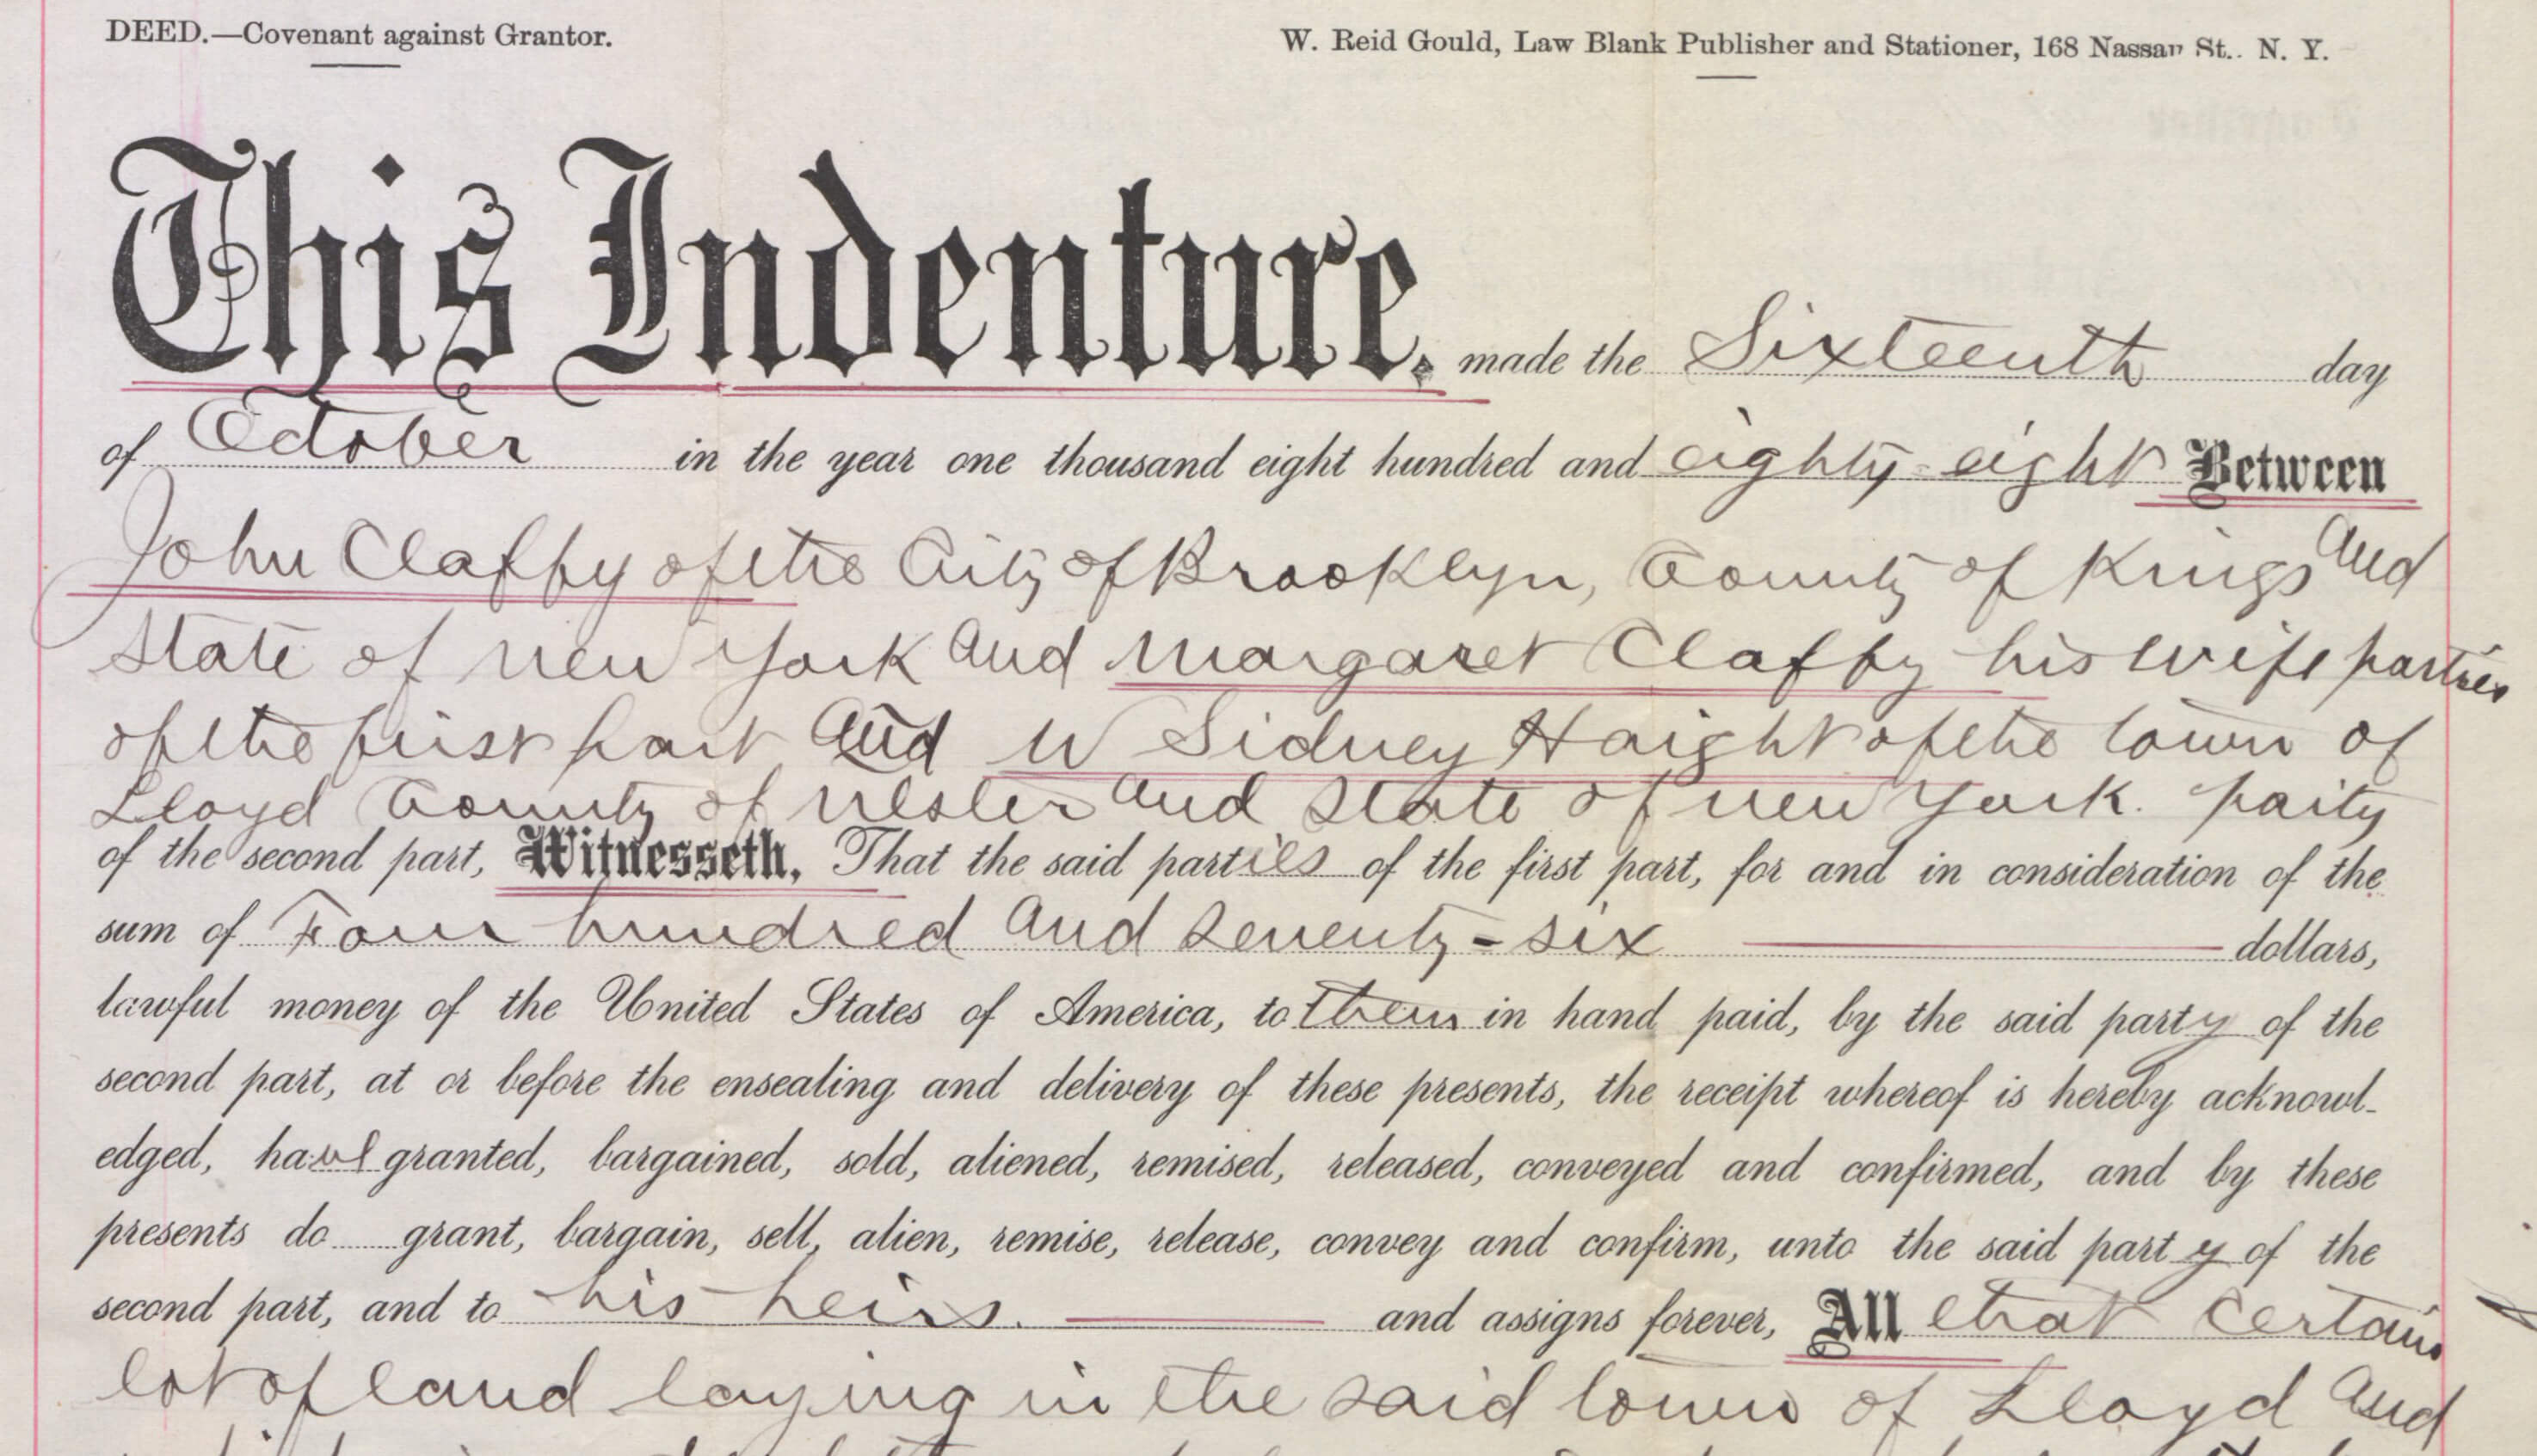 DEED.—Covenant against Grantor.
W. Reid Gould, Law Blank Publisher and Stationer, 168 Nassau St.. N. Y.
This Indenture, made the Sixteenth day
of October in the year one thousand eight hundred and eighty-eight Between
John Claffy of the City of Brooklyn, County of Kings and
State of new York and Margaret Claffy his wife parties
of the first part and W Sidney Haight of the town of
Lloyd County of Ulster and State of new York. party
of the second part, Witnesseth, That the said parties of the first part, for and in consideration of the
sum of Four hundred and seventy-six dollars,
lawful money of the United States of America, to them in hand paid, by the said party of the
second part, at or before the ensealing and delivery of these presents, the receipt whereof is hereby acknowl-
edged, have granted, bargained, sold, aliened, remised, released, conveyed and confirmed, and by these
presents do grant, bargain, sell, alien, remise, release, convey and confirm, unto the said party of the
second part, and to his heirs. and assigns forever, All that certain
lot of land laying in the said town of Lloyd and